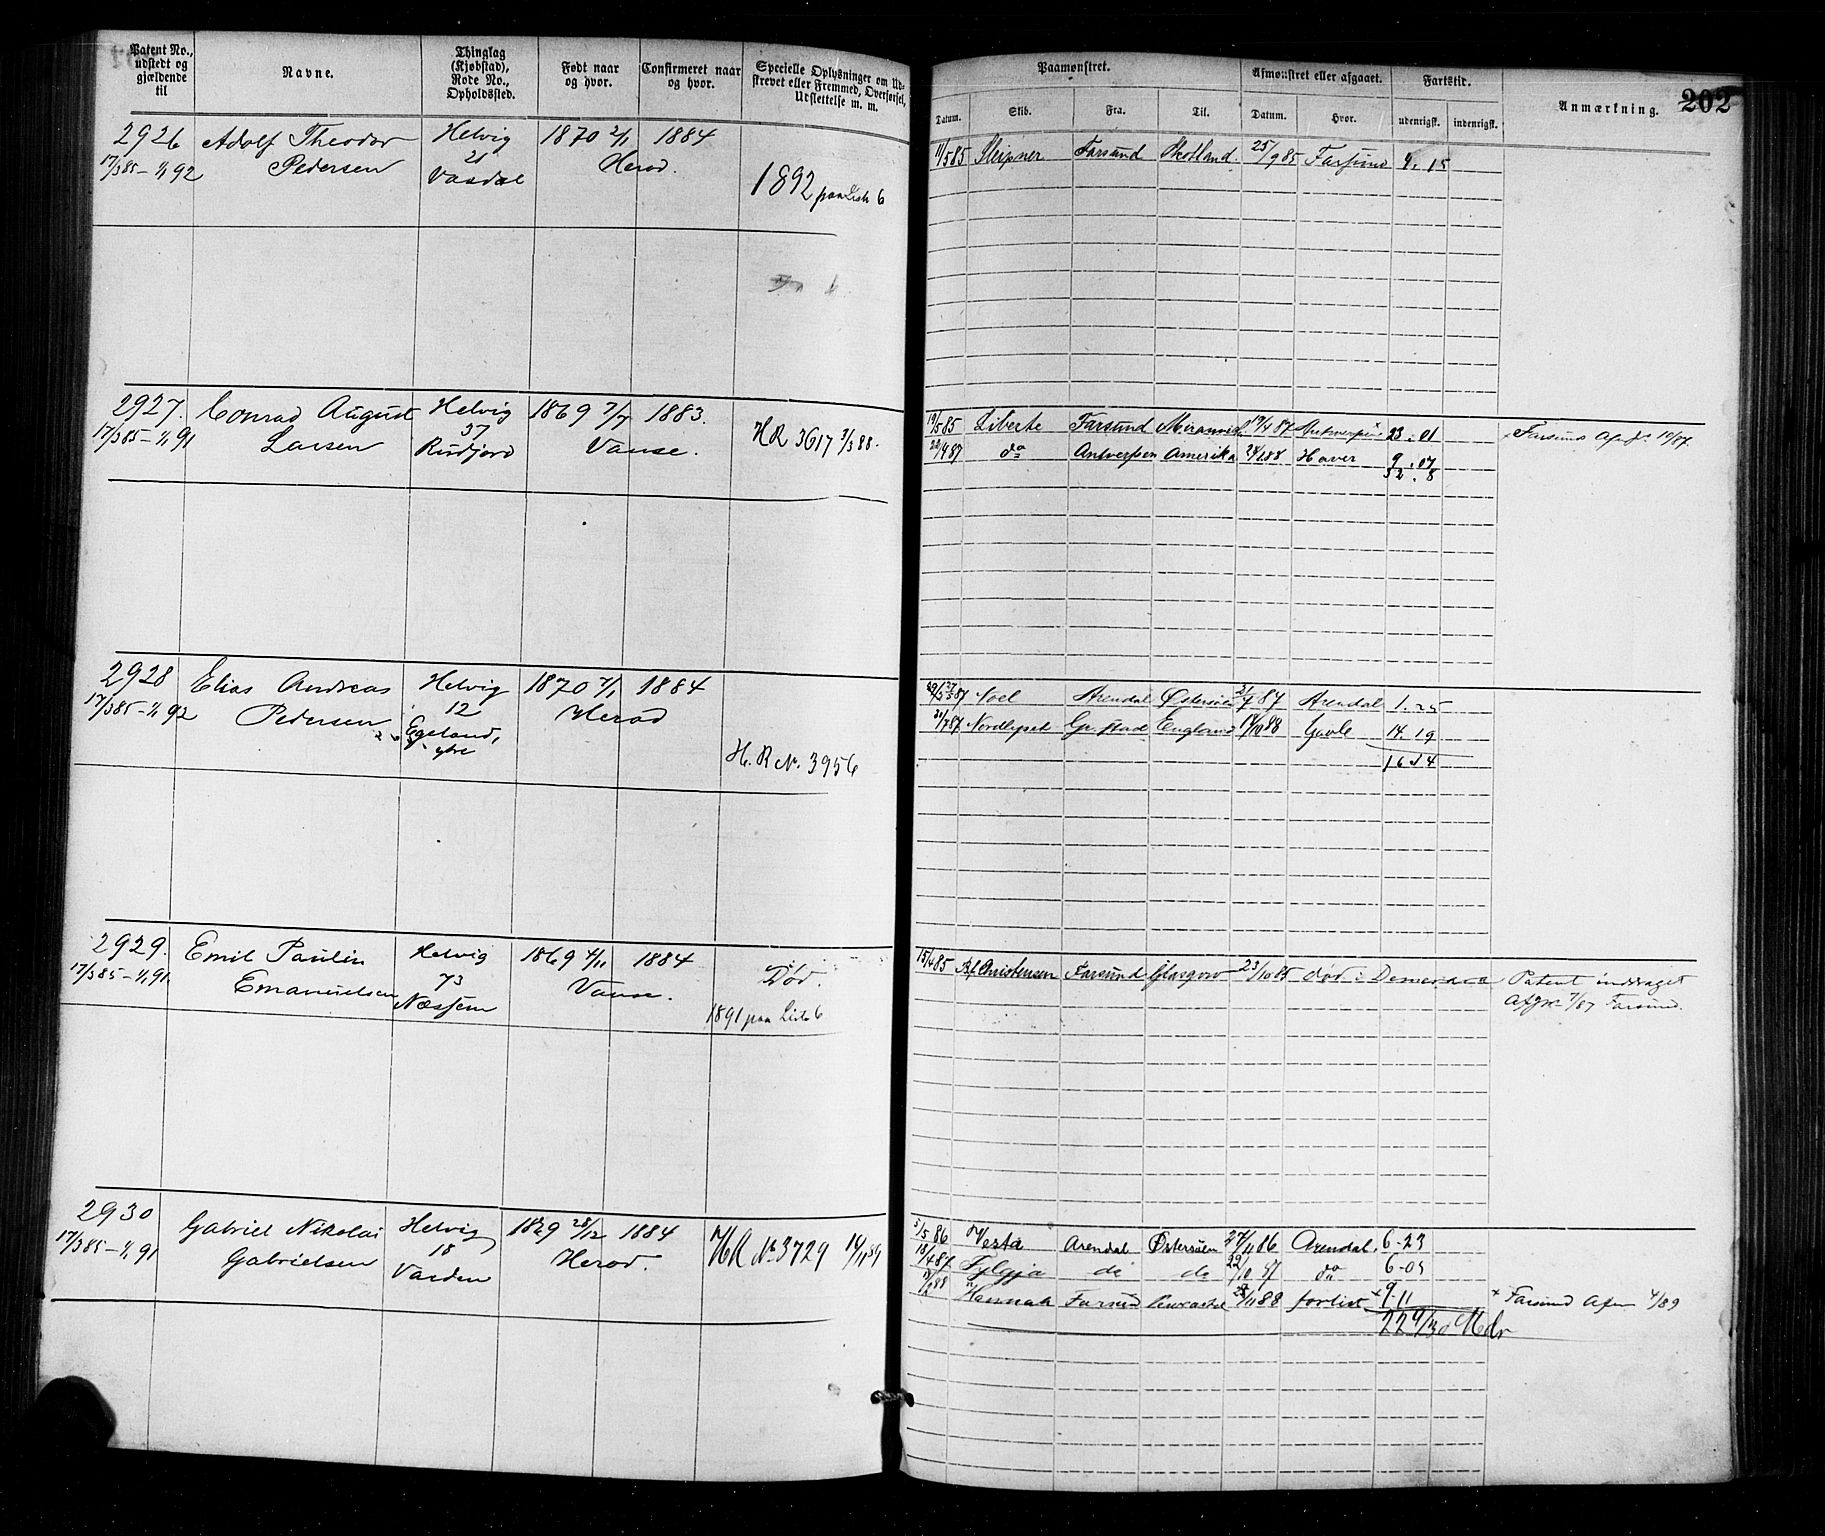 Patent No., udstedt og gjældende til
Navne.
Thinglag (Kjøbstad), Rode No., Opholdssted.
Født naar og hvor.
Confirmeret naar og hvor.
Specielle Oplysninger om Udskrevet eller Fremmed, Overførsel, Udslettelse m. m.
Paamønstret.
Afmønstret eller afgaaet.
Fartstid.
Anmærkning.
202
Datum. Skib. Fra. Til. Datum. Hvor. udenrigsk. indenrigsk.
2926 Adolf Theodor Helvig 1870 2/1 1884
17/3 85 - 1/1 92 Pedersen 21 Herod.
Vasdal
1892 paa Liste 6
11/5 85 Sleipner Farsund Skotland. 25/9 85 Farsund 4. 15
2927. Conrad August Helvig 1869 7/7 1883.
17/3 85 - 1/1 91 Larsen 37 Vanse.
Rudjord
HR 3617 7/3 88.
19/5 85 Liberte Farsund Miramichi 19/4 87 Antwerpen 23. 01 Farsund Afmf. 10/87.
22/4 87 do Antverpen Amerika 24/1 88 Haver 9. 07
32. 8
2928 Elias Andreas Helvig 1870 7/1 1884
17/3 85 - 1/1 92 Pedersen 12 Herod
Egeland,
ytre
H. R No. 3956
87 Noel Arendal Østersøen 87 Arendal 1. 25
20/7 87 Nordlyset Gr.stad England 88 Gavle 14. 19
16 14
2929. Emil Paulin Helvig 1869 4/11 1884
17/3 85 - 1/1 91. Emanuelsen 73 Vanse.
Næssjem
Død.
1891 paa Liste 6
15/4 85 Christensen Farsund Glasgow 23/10 85 død i Demerara Patent inddraget
Afgm 7/87 Farsund.
2930 Gabriel Nikolai Helvig 1869 28/12 1884
17/3 85 - 1/1 91 Gabrielsen 18 Herod.
Varden
HR No 3729 14/1 89
5/5 86 Vesta Arendal Østersøen 27/11 86 Arendal. 6-23
18/4 87 Fylgja do do 22/10 87 do 6-05
88 Hannah Farsund 88 forlist + 9. 11 + Farsund Afm 4/89
22 9/30 Mdr